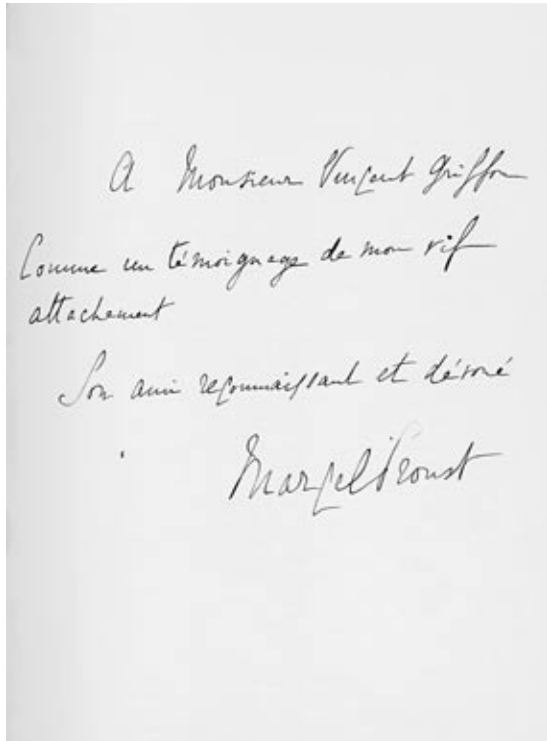 A Monsieur Vincent Griffon
Comme un témoignage de mon vif
attachement
Son ami reconnaissant et dévoué
Marcel Proust